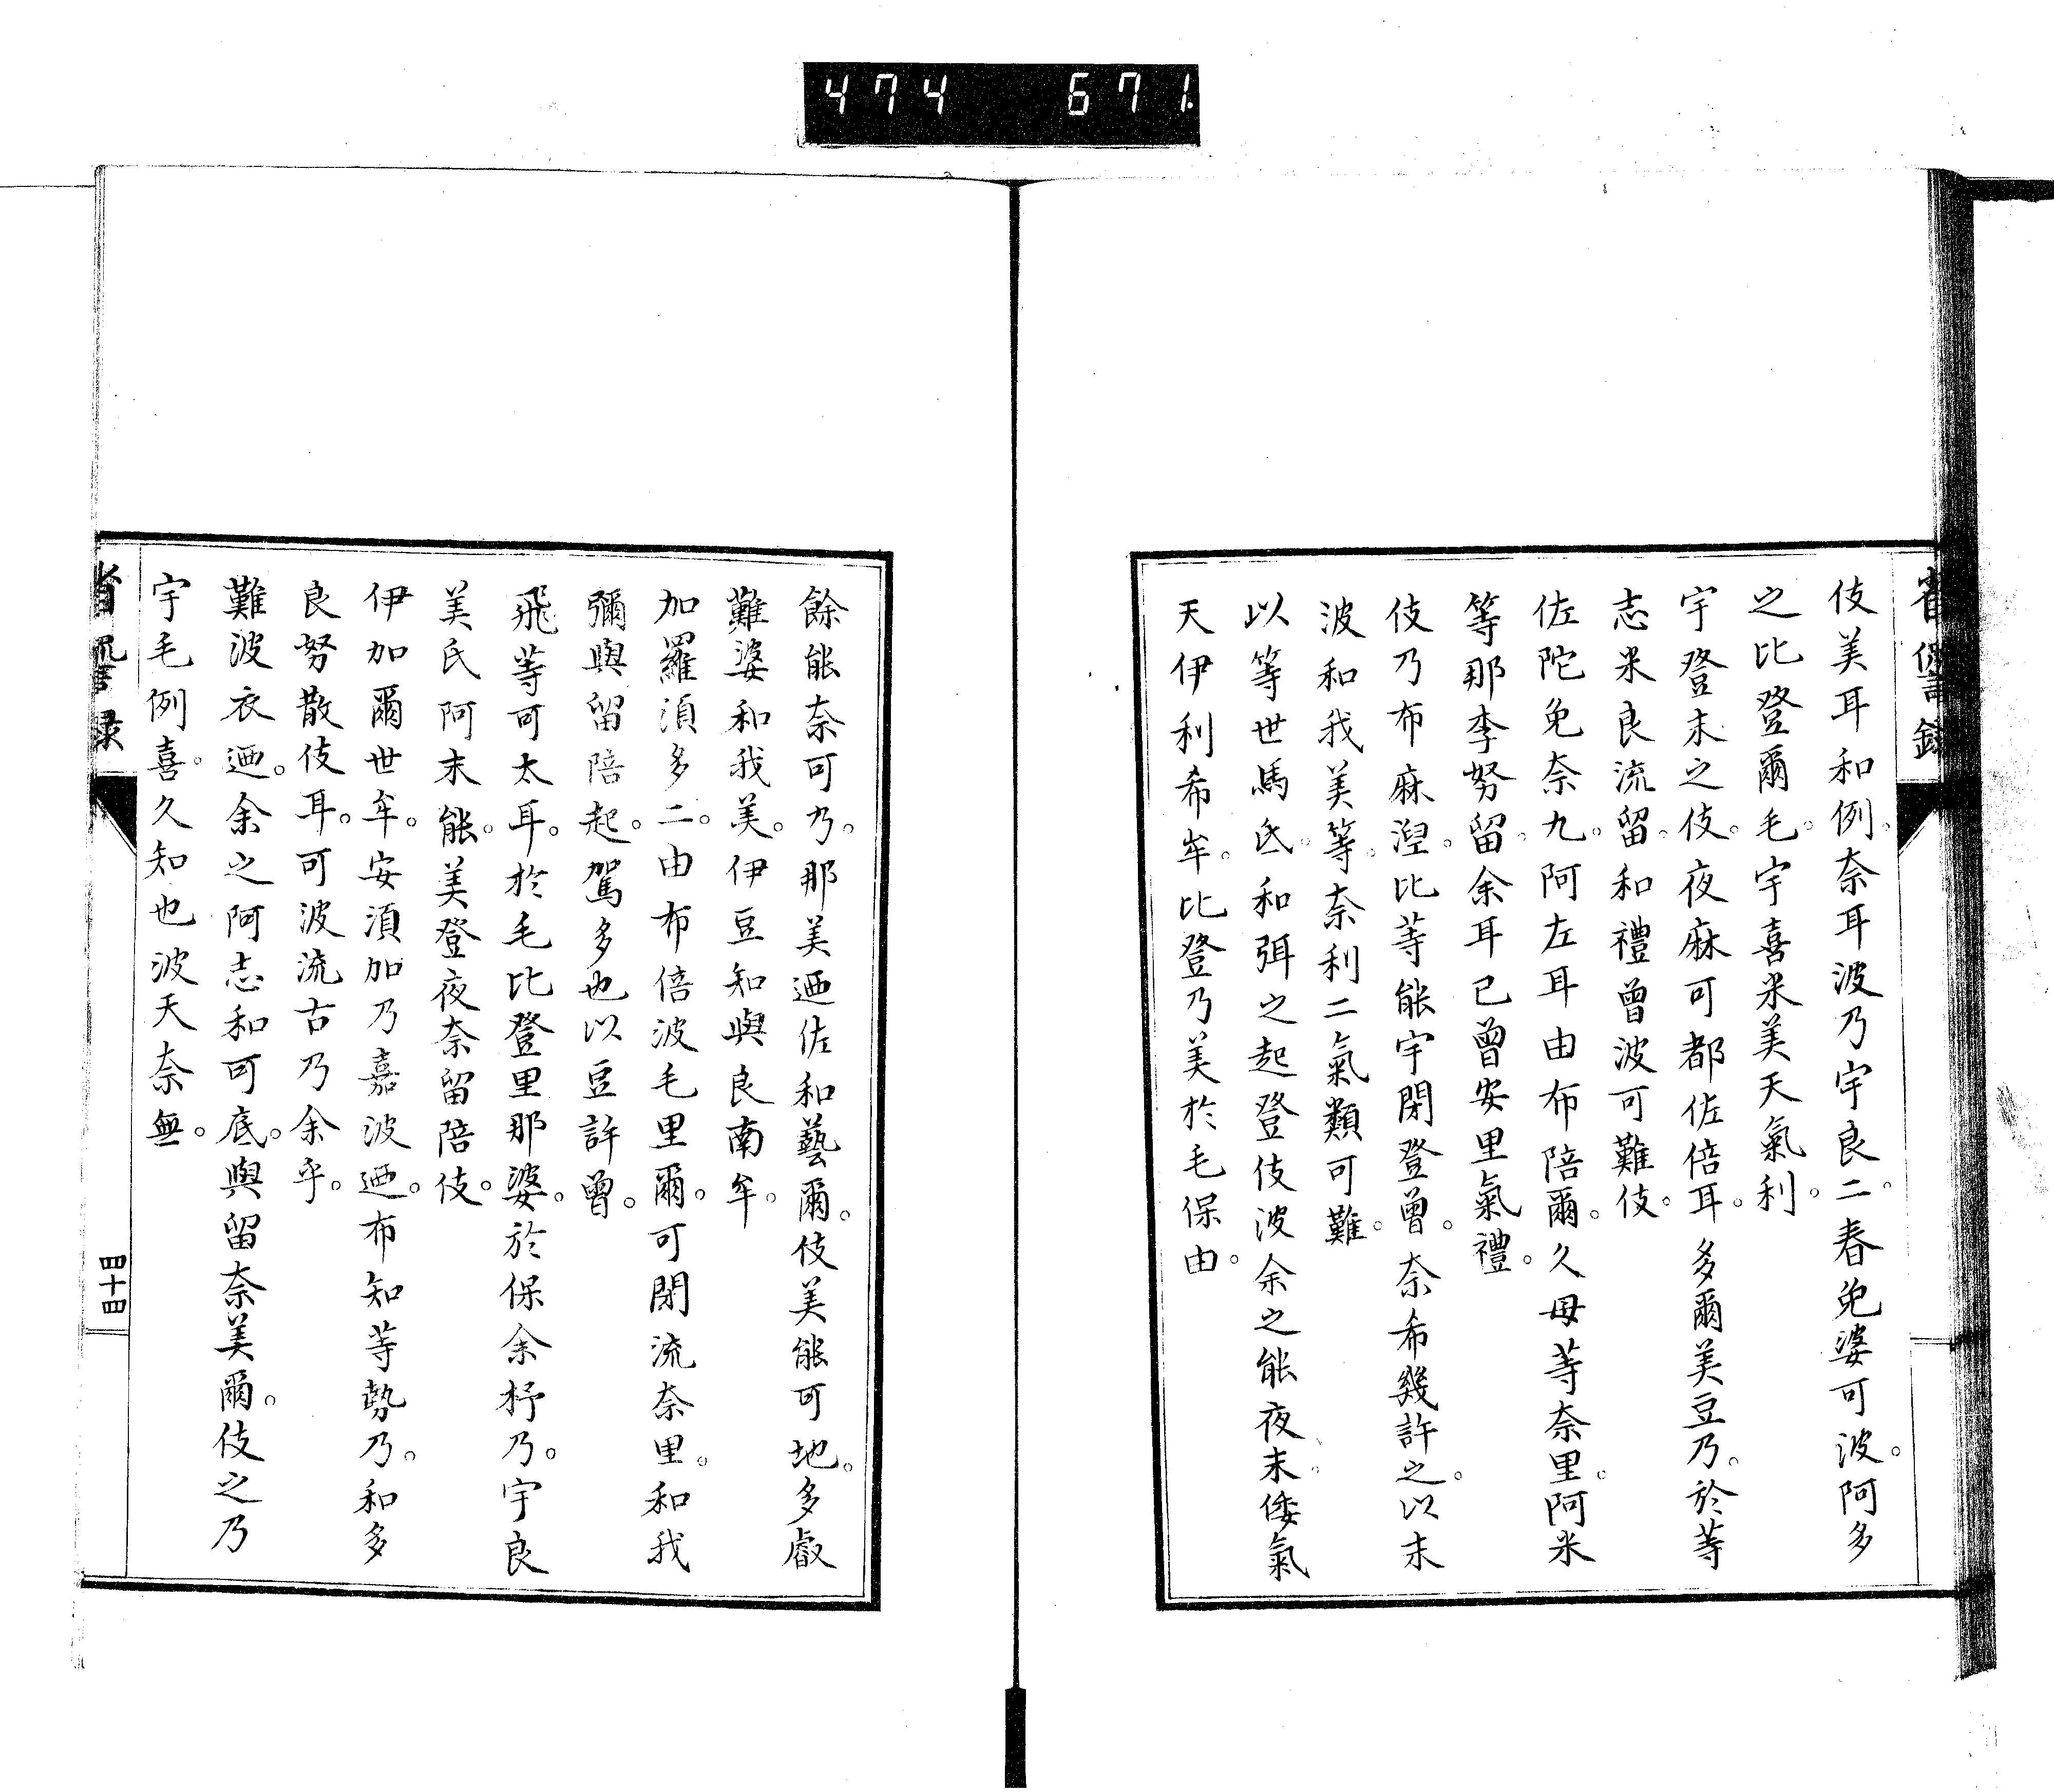 474 671.
省諐録
伎美耳和例。奈耳波乃宇良二。春免婆可波。阿多
之比登爾毛。宇喜米美天氣利。
宇登末之伎。夜麻可都佐倍耳。多爾美豆乃。於等
志米良流留。和禮曾波可難伎。
佐陀免奈九。阿左耳由布陪爾。久毋等奈里。阿米
等那李努留。余耳已曾安里氣禮。
伎乃布麻涅。比等能宇閉登曾。奈希幾許之。以末
波和我美等。奈利二氣類可難。
以等世馬氐。和弭之起登伎波余之能夜末。倭氣
天伊利希牟。比登乃美於毛保由。
餘能奈可乃。那美迺佐和藝爾。伎美能可地。多叡
難婆和我美。伊豆知與良南牟。
加羅湏多二。由布倍波毛里爾。可閉流奈里。和我
彌與留陪起。駕多也以豆許曾。
飛等可太耳。於毛比登里那婆。於保余杼乃。宇良
美氐阿末能。美登夜奈留陪伎。
伊加爾世牟。安湏加乃嘉波迺。布知等勢乃。和多
良努散伎耳。可波流古乃余乎。
難波衣迺。余之阿志和可底。與留奈美爾。伎之乃
宇毛例喜。久知也波天奈無。
省諐録
四十四